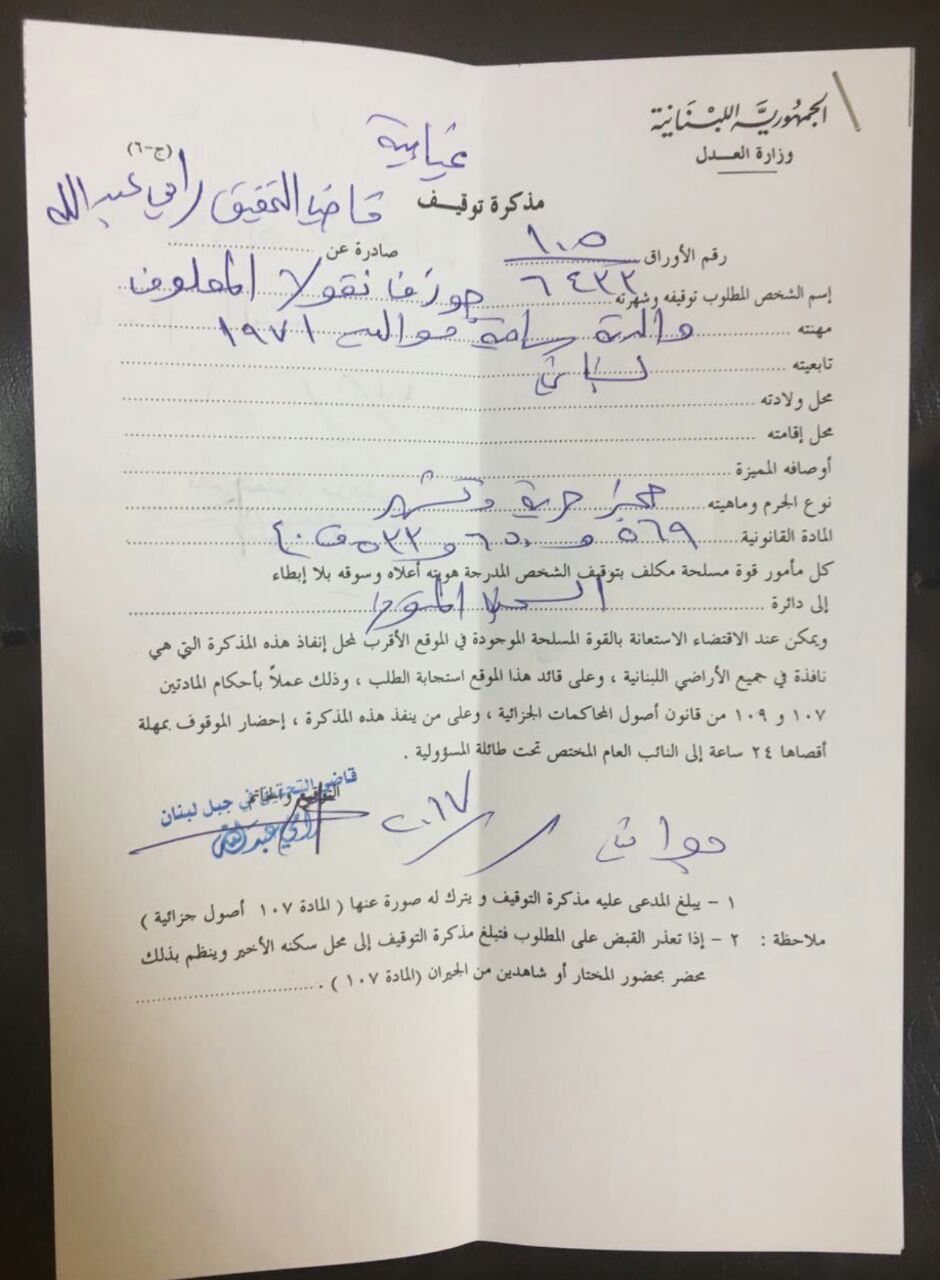 الجمهورية اللبنانية
وزارة العدل
غيابية
(ج-٦)
مذكرة توقيف
قاضي التحقيق رامي عبد الله
رقم الأوراق
صادرة عن
٦٤٣٢
إسم الشخص المطلوب توقيفه وشهرته جوزف نقولا المعلوف
مهنته والدته سامية مواليد ١٩٧١
تابعيته لبناني
محل ولادته
محل إقامته
أوصافه المميزة
نوع الجرم وماهيته حجز حرية وتشهير
المادة القانونية ٥٦٩ و ٦٥٠ و
كل مأمور قوة مسلحة مكلف بتوقيف الشخص المدرجة هويته أعلاه وسوقه بلا إبطاء
إلى دائرة
ويمكن عند الاقتضاء الاستعانة بالقوة المسلحة الموجودة في الموقع الأقرب لمحل إنفاذ هذه المذكرة التي هي
نافذة في جميع الأراضي اللبنانية ، وعلى قائد هذا الموقع استجابة الطلب ، وذلك عملاً بأحكام المادتين
١٠٧ و ١٠٩ من قانون أصول المحاكمات الجزائية ، وعلى من ينفذ هذه المذكرة ، إحضار الموقوف بمهلة
أقصاها ٢٤ ساعة إلى النائب العام المختص تحت طائلة المسؤولية .
التوقيع والخاتم
قاضي التحقيق في جبل لبنان
رامي عبدالله
٢٠١٧
١ - يبلغ المدعى عليه مذكرة التوقيف و يترك له صورة عنها ( المادة ١٠٧ أصول جزائية )
ملاحظة : ٢ - إذا تعذر القبض على المطلوب فتبلغ مذكرة التوقيف إلى محل سكنه الأخير وينظم بذلك
محضر بحضور المختار أو شاهدين من الجيران (المادة ١٠٧ ) .